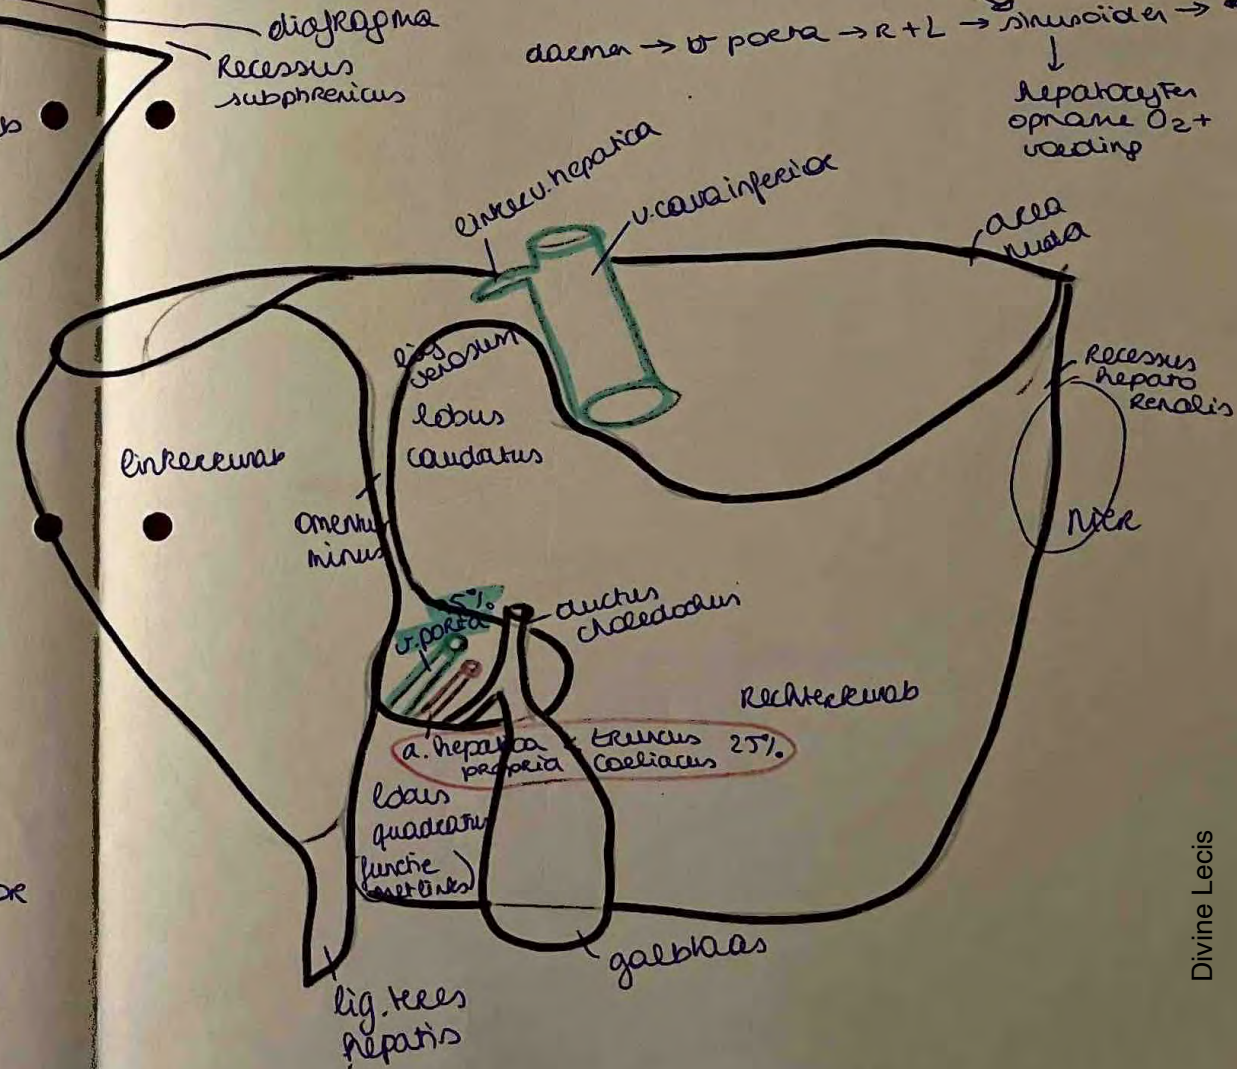 diafragma
Recessus
subphrenicus
darmen → v porta → R + L → sinusoïden →
↓
hepatocyten
opname O2 +
voeding
linker v. hepatica
v. cava inferior
area
nuda
Recessus
hepato
Renalis
lig
venosum
lobus
caudatus
linkerkwab
omentum
minus
Nier
5%
v. porta
ductus
choledochus
Rechterkwab
a. hepatica < truncus 25%
propria coeliacus
lobus
quadratus
(functie
met links)
galblaas
lig. teres
hepatis
Divine Lecis